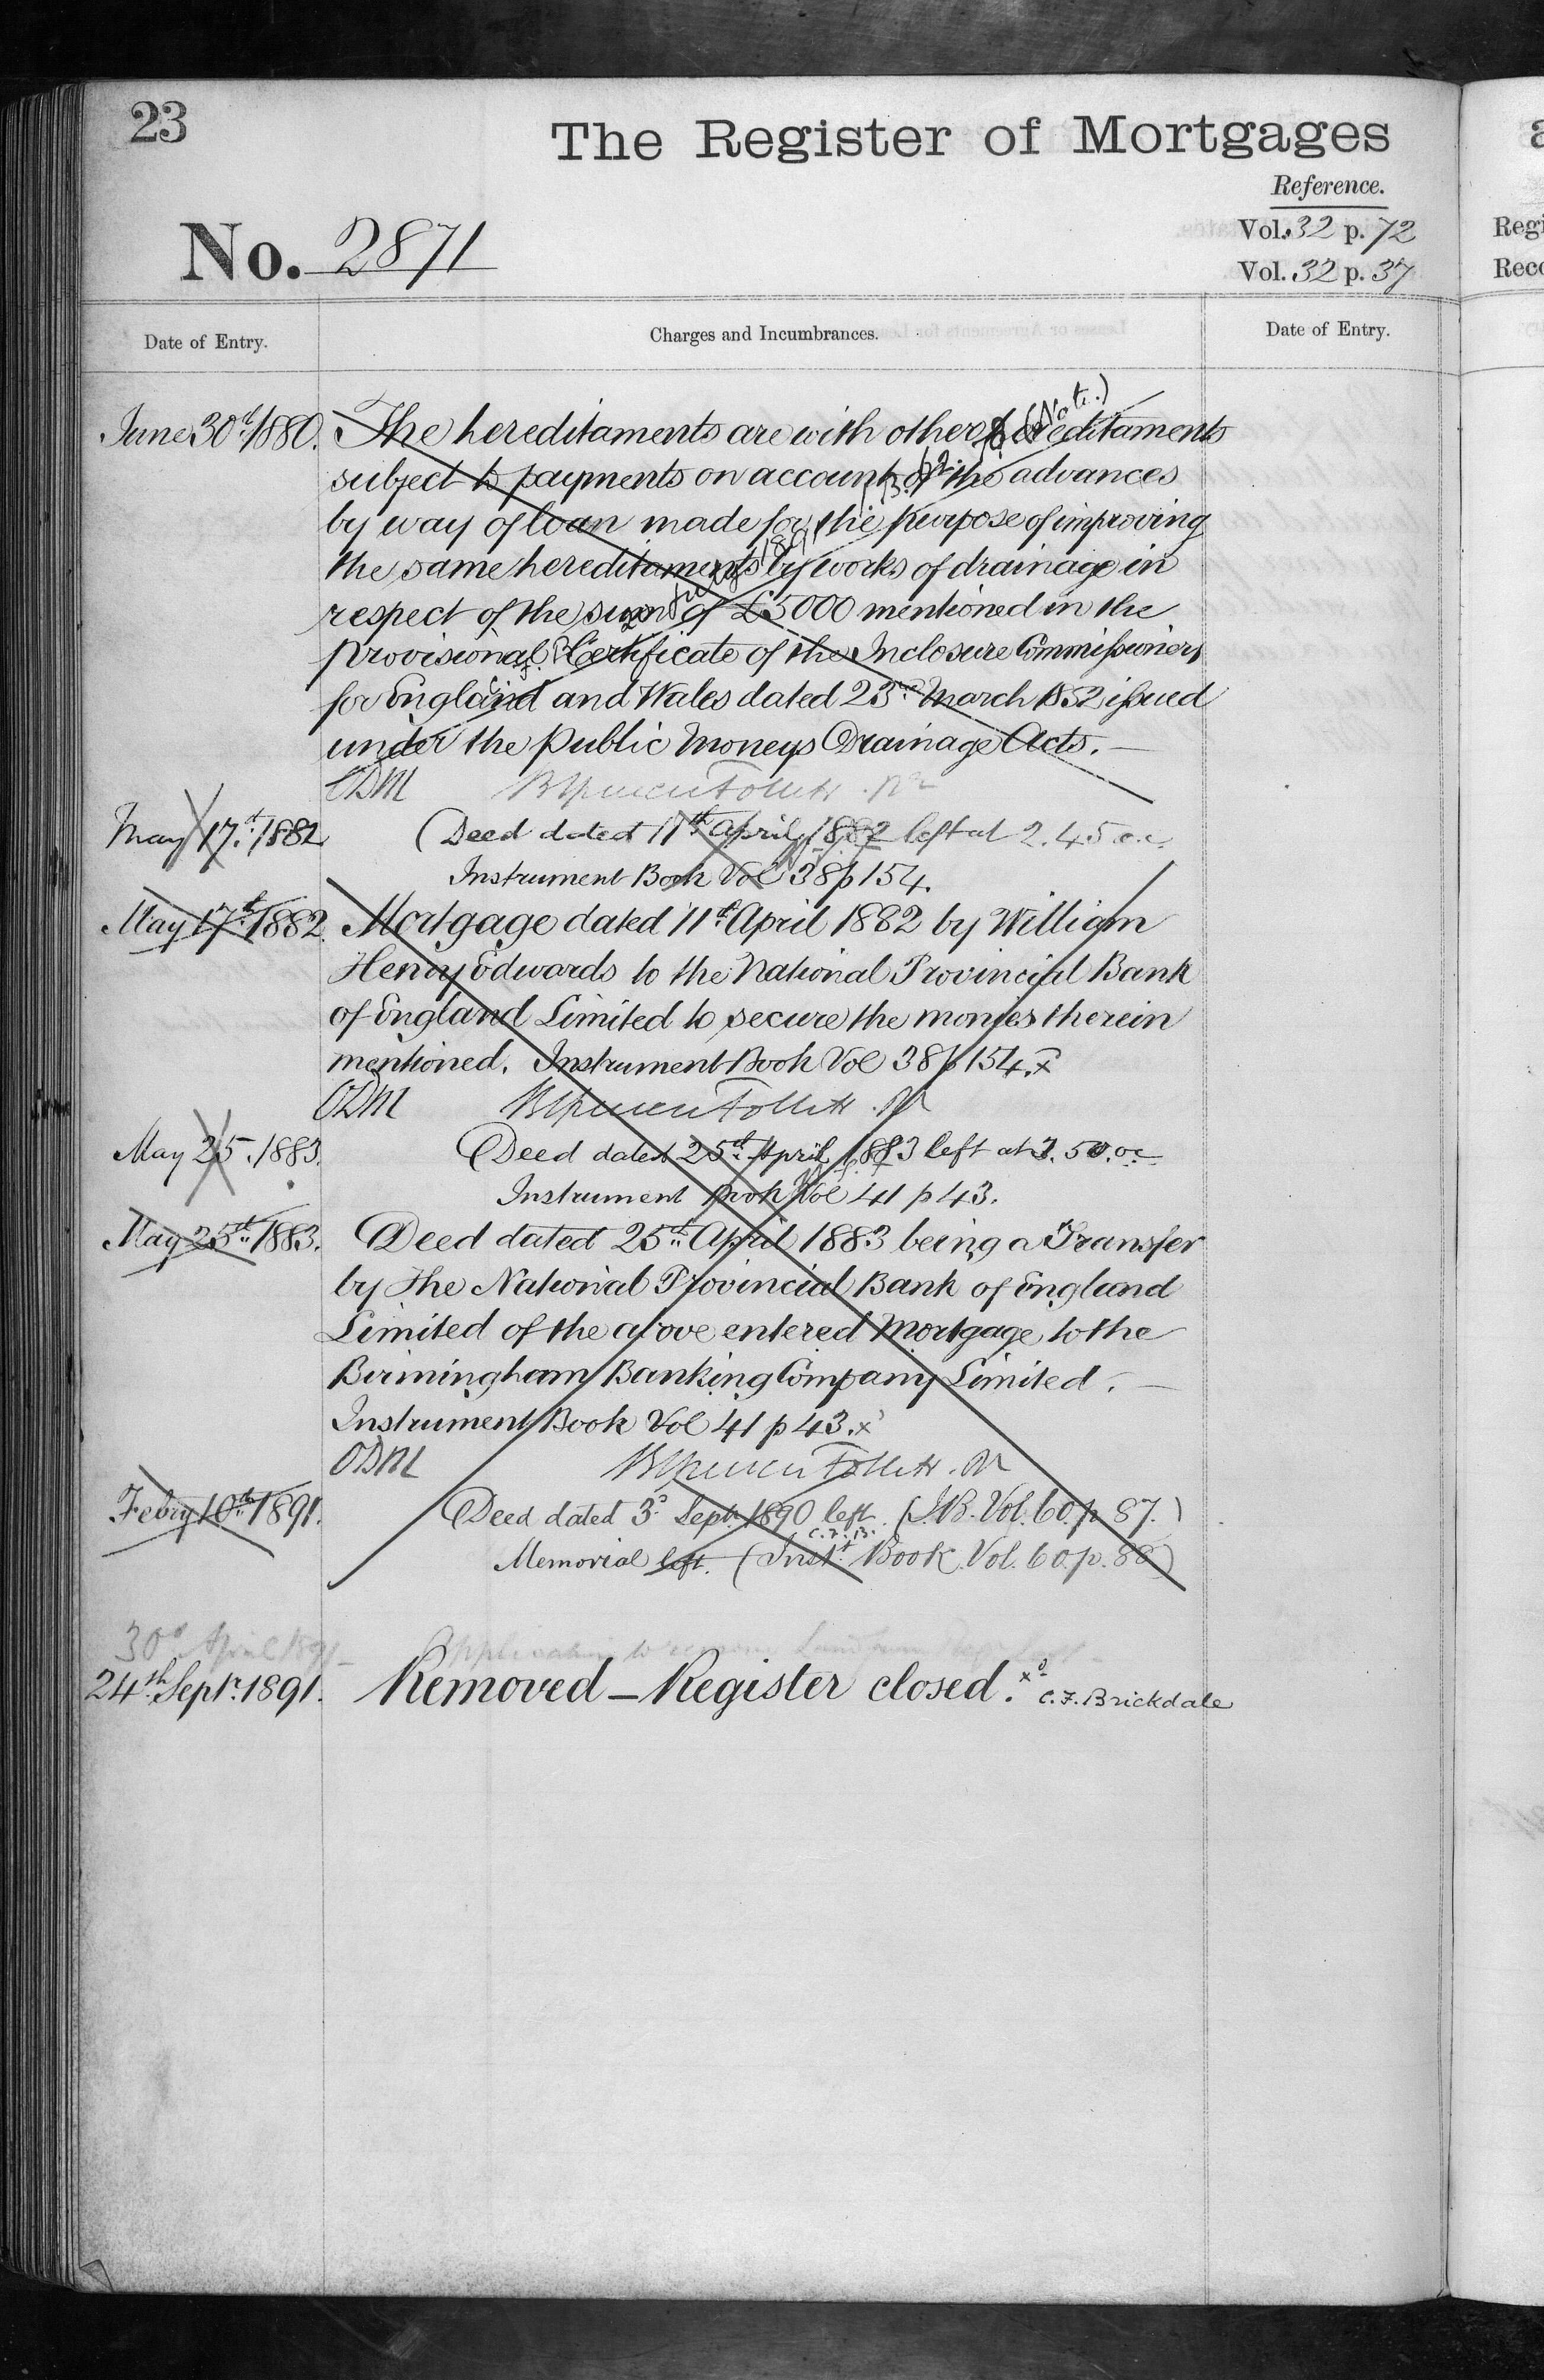 23
The Register of Mortgages
Reference.
No. 2871
Vol. 32 p. 72
Vol. 32 p. 37
Regi
Reco
Date of Entry.
Charges and Incumbrances.
Date of Entry.
June 30th 1880. The hereditaments are with other hereditaments
(Note.)
subject to payments on account of the advances
by way of loan made for the purpose of improving
the same hereditaments by works of drainage in
respect of the sum of £5000 mentioned in the
provisional Certificate of the Inclosure Commissioners
for England and Wales dated 23rd March 1852 issued
under the Public Moneys Drainage Acts. —
ODM
May 17th 1882 Deed dated 11th April 1882 left at 2.45
Instrument Book Vol 38 p 154.
May 17th 1882. Mortgage dated 11th April 1882 by William
Henry Edwards to the National Provincial Bank
of England Limited to secure the monies therein
mentioned. Instrument Book Vol 38 p 154. x
ODM
May 25. 1883. Deed dated 25th April 1883 left at
Instrument Book Vol 41 p 43.
May 25th 1883. Deed dated 25th April 1883 being a Transfer
by the National Provincial Bank of England
Limited of the above entered Mortgage to the
Birmingham Banking Company Limited. —
Instrument Book Vol 41 p 43. x
ODM
Febry 10th 1891. Deed dated 3d Sept. 1890 left. (I.B. Vol. 60. p. 87.)
C.F.B.
Memorial left. (Inst. Book. Vol. 60. p. 88)
30th April 1891
24th Septr. 1891. Removed – Register closed. x C.F. Brickdale